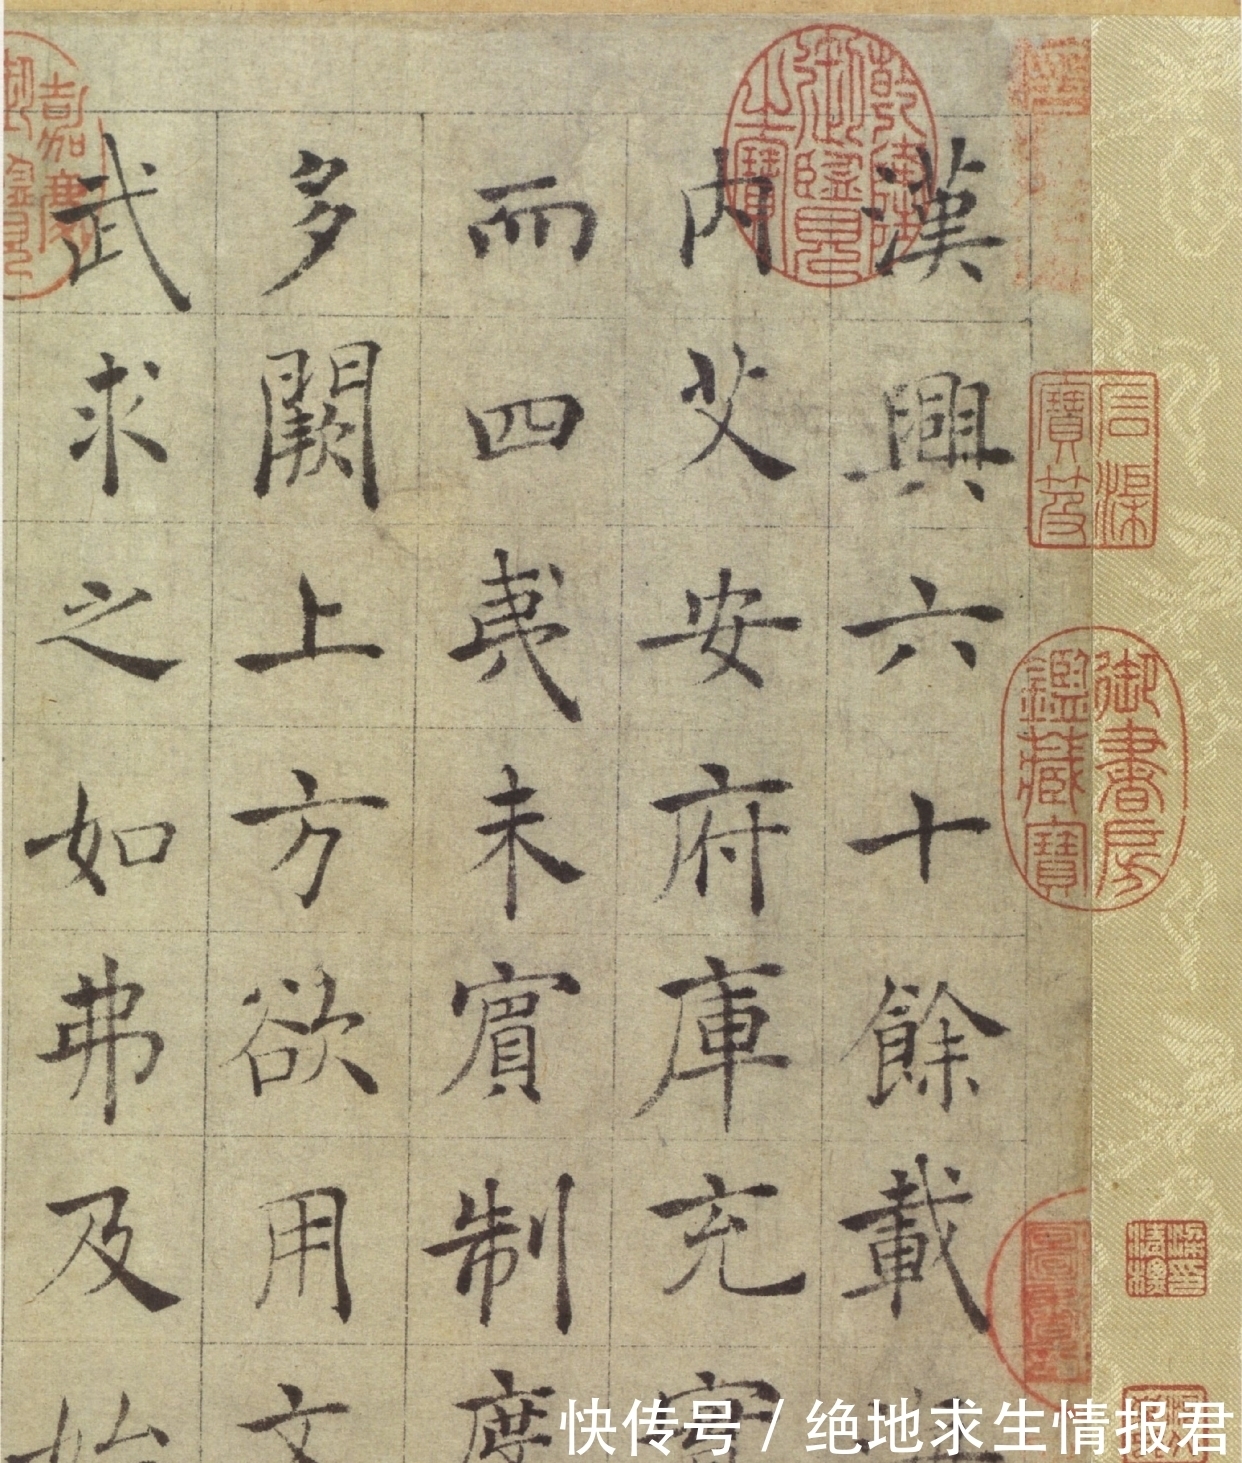 石渠寶笈
御書房鑑藏寶
乾隆御覽之寶
漢興六十餘載
內艾安府庫充實
而四夷未賓制度
多闕上方欲用文
武求之如弗及始
嘉慶御覽
快传号 / 绝地求生情报君